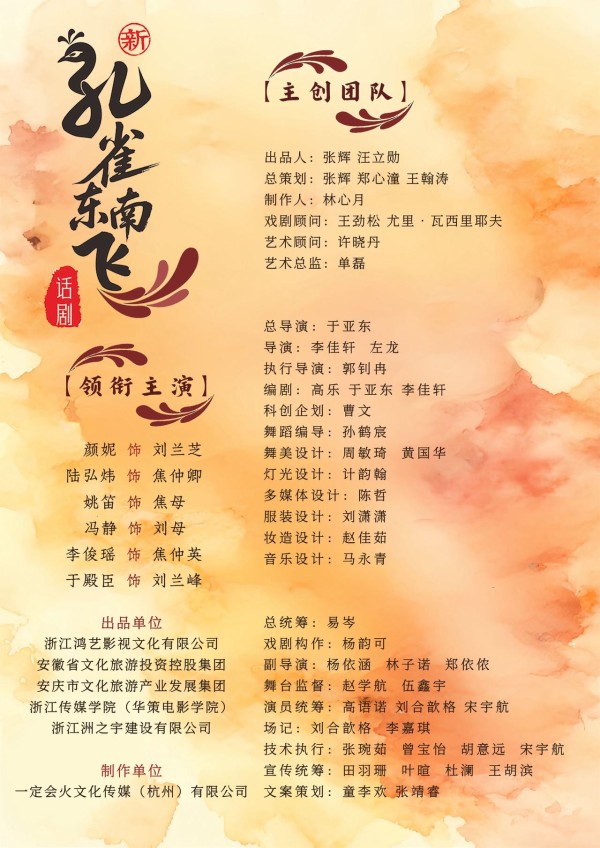 新
孔雀东南飞
话剧
【领衔主演】
颜妮 饰 刘兰芝
陆弘炜 饰 焦仲卿
姚笛 饰 焦母
冯静 饰 刘母
李俊瑶 饰 焦仲英
于殿臣 饰 刘兰峰
出品单位
浙江鸿艺影视文化有限公司
安徽省文化旅游投资控股集团
安庆市文化旅游产业发展集团
浙江传媒学院（华策电影学院）
浙江洲之宇建设有限公司
制作单位
一定会火文化传媒（杭州）有限公司
【主创团队】
出品人：张辉 汪立勋
总策划：张辉 郑心潼 王翰涛
制作人：林心月
戏剧顾问：王劲松 尤里·瓦西里耶夫
艺术顾问：许晓丹
艺术总监：单磊
总导演：于亚东
导演：李佳轩 左龙
执行导演：郭钊冉
编剧：高乐 于亚东 李佳轩
科创企划：曹文
舞蹈编导：孙鹤宸
舞美设计：周敏琦 黄国华
灯光设计：计韵翰
多媒体设计：陈哲
服装设计：刘潇潇
妆造设计：赵佳茹
音乐设计：马永青
总统筹：易岑
戏剧构作：杨韵可
副导演：杨依涵 林子诺 郑依侬
舞台监督：赵学航 伍鑫宇
演员统筹：高语诺 刘合歆格 宋宇航
场记：刘合歆格 李嘉琪
技术执行：张琬茹 曾宝怡 胡意远 宋宇航
宣传统筹：田羽珊 叶暄 杜澜 王胡滨
文案策划：童李欢 张靖睿